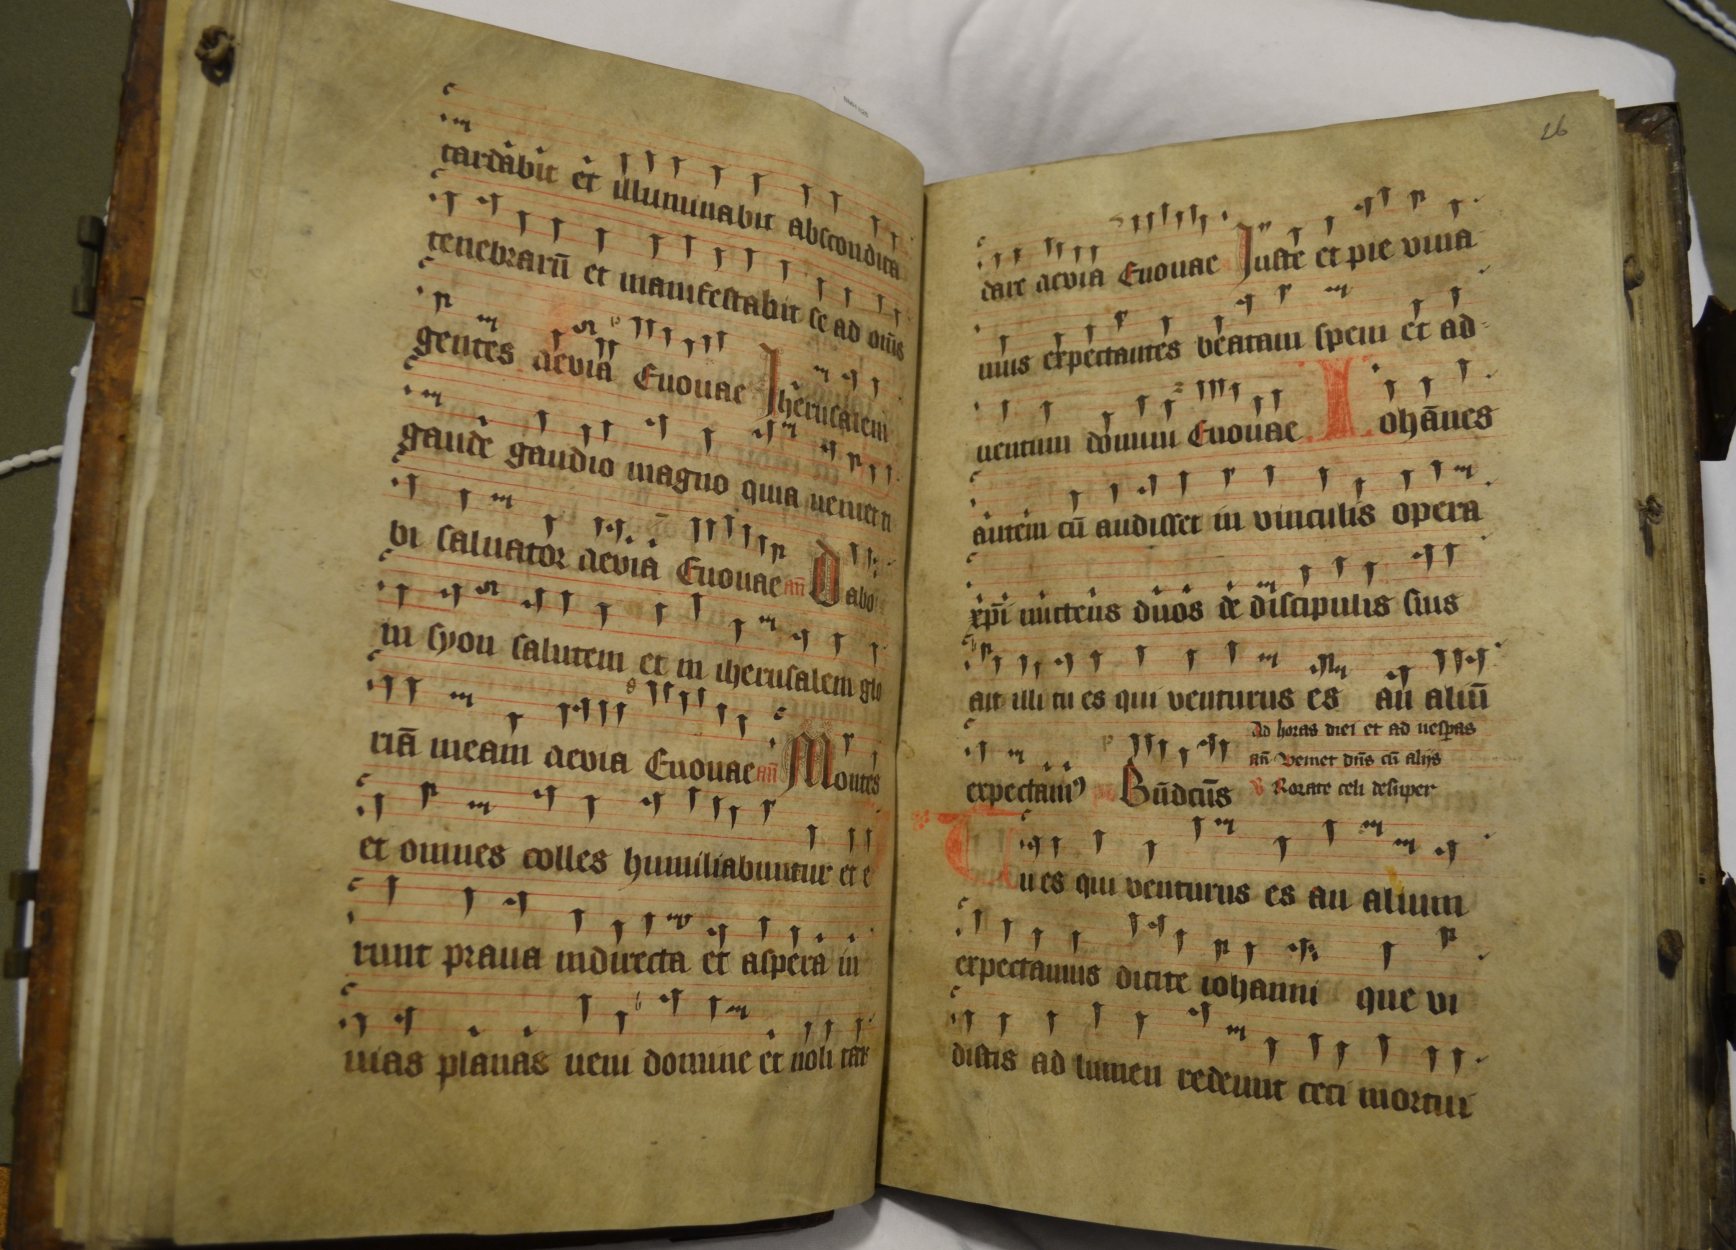 tardabit et illuminabit abscondita
tenebrarū et manifestabit se ad om̄s
gentes aevia Euouae Iherusalem
gaude gaudio magno quia ueniet ti
bi saluator aevia Euouae an̄ Dabo
in syon salutem et in iherusalem glo
riā meam aevia Euouae an̄ Montes
et omnes colles humiliabuntur et e
runt praua indirecta et aspera in
uias planas ueni domine et noli tar
26
dare aevia Euouae Iuste et pie viua
mus expectantes beatam spem et ad
uentum domini Euouae Iohānes
autem cū audisset in vinculis opera
xp̄i mittens duos de discipulis suis
ait illi tu es qui venturus es an aliū
expectamꝰ Bn̄dc̄us
Ad horas diei et ad uesp̄as
an̄ Veniet dn̄s cū alijs
Rorate celi desuper
Tu es qui venturus es an alium
expectamus dicite iohanni que vi
distis ad lumen redeunt ceci mortui